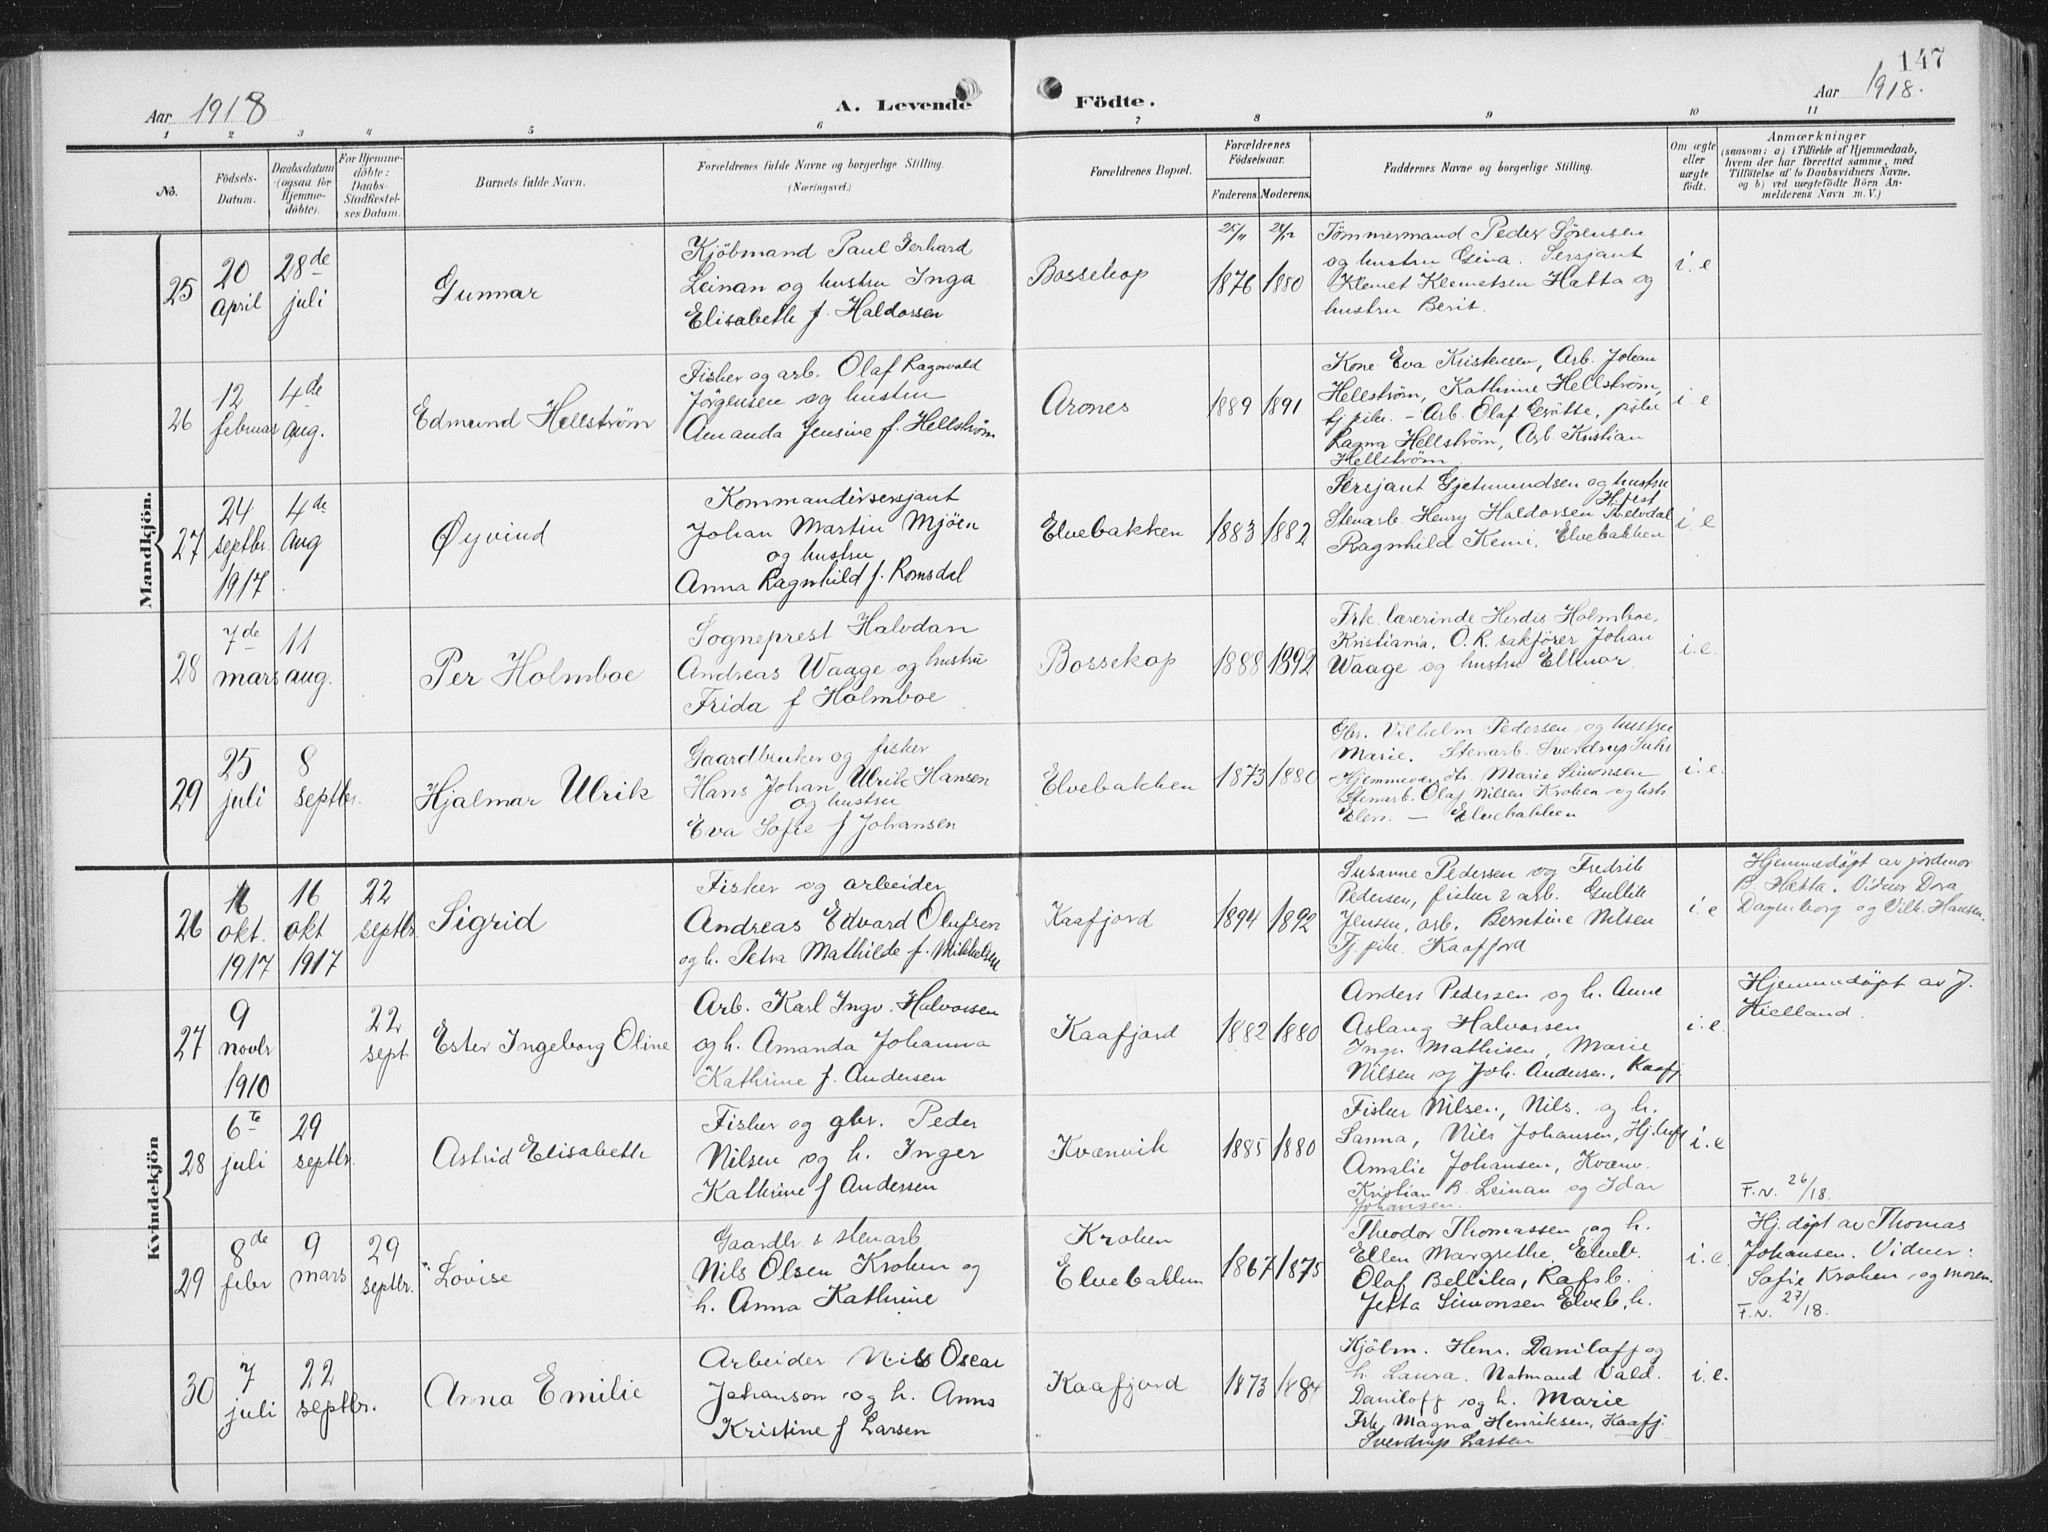 147
Aar 1918
A. Levende
Födte.
Aar 1918.
1 2 3 4 5 6 7 8 9 10 11
No.
Födsels-
Datum.
Daabsdatum
(ogsaa for
Hjemme-
döbte).
For Hjemme-
döbte:
Daabs-
Stadfestel-
ses Datum.
Barnets fulde Navn.
Forældrenes fulde Navne og borgerlige Stilling.
(Næringsvei.)
Forældrenes Bopæl.
Forældrenes
Födselsaar.
Faderens. Moderens.
Faddernes Navne og borgerlige Stilling.
Om ægte
eller
uægte
födt.
Anmærkninger
(saasom: a) i Tilfælde af Hjemmedaab,
hvem der har forrettet samme, med
Tilföielse af to Daabsvidners Navne.
og b) ved uægtefödte Börn An-
melderens Navn m. V.)
Mandkjön.
25
20
april
28de
juli
Gunnar
Kjöbmand Paul Gerhard
Leinan og hustru Inga
Elisabeth f. Haldorsen
Bossekop
25/11
1876
24/12
1880
Tømmermand Peder Sørensen
og hustru Gina. Sersjant
Klemet Klemetsen Hætta og
hustru Berit.
i. e
26
12
februar
4de
aug.
Edmund Hellström
Fisker og arb. Olaf Ragnvald
Jörgensen og hustru
Amanda Jensine f. Hellström
Arones
1889 1891
Kone Eva Kristensen, Arb. Johan
Hellström, Kathrine Hellström,
tj pike. – Arb. Olaf Grötte, pike
Ragna Hellström, Arb. Kristian
Hellström.
i. e
27
24
septbr.
1917
4de
aug
Øyvind
Kommandersersjant
Johan Martin Mjöen
og hustru
Anna Ragnhild f. Romsdal
Elvebakken
1883 1882
Sersjant Gjetmundsen og hustru
Stenarb. Henry Haldorsen
Ragnhild Kemi. Elvebakken
i. e
28
7de
mars
11
aug.
Per Holmboe
Sogneprest Halvdan
Andreas Waage og hustru
Frida f Holmboe
Bossekop
1888 1892
Frk. lærerinde Herdis Holmboe,
Kristiania. O.R. sakfører Johan
Waage og hustru Ellinor.
i. e.
29
25
juli
8
septbr.
Hjalmar Ulrik
Gaardbruker og fisker
Hans Johan Ulrik Hansen
og hustru
Eva Sofie f Johansen
Elvebakken
1873 1880
Gbr. Vilhelm Pedersen og hustru
Marie. Stenarb. Sverdrup Suhr
Hjemmeværende Marie Simonsen
Stenarb. Olaf Nilsen Krohen og hstr
Elen. – Elvebakken
i. e.
Kvindekjön
26
16
okt.
1917
16
okt
1917
22
septbr.
Sigrid
Fisker og arbeider
Andreas Edvard Olufsen
og h. Petra Mathilde f. Mikkelsen
Kaafjord
1894 1892
Susanne Pedersen og Fredrik
Pedersen, fisker & arb. Gullik
Jensen, arb. Berntine Nilsen
Tj. pike. Kaafjord
i. e
Hjemmedøpt av jordmor
B. Hætta. Vidner Dora
Dagenborg og Vilh. Hansen.
27
9
novbr
1910
22
sept
Ester Ingeborg Oline
Arb. Karl Ingv. Halvorsen
og h. Amanda Johanna
Kathrine f. Andersen
Kaafjord
1882 1880
Anders Pedersen og h. Anne
Aslaug Halvorsen
Ingv. Mathisen, Marie
Nilsen og Joh. Andersen, Kaafj
i. e.
Hjemmedøpt av J.
Kielland.
28
6te
juli
29
septbr.
Astrid Elisabeth
Fisker og gbr. Peder
Nilsen og h. Inger
Kathrine f Andersen
Kvænvik
1885 1880
Fisker Nilsen, Nils. og h.
Sanna, Nils Johansen,
Amalie Johansen, Kvænv.
Kristian B. Leinan og Idar
Johansen.
i. e
F.N. 26/18.
29
8de
febr
9
mars
29
septbr.
Lovise
Gaardbr & stenarb
Nils Olsen Krohen og
h. Anna Kathrine
Krohen
Elvebakken
1867 1875
Theodor Thomassen og h.
Ellen Margrethe, Elveb.
Olaf Bellika, Rafsb.
Jetta Simonsen Elveb. h.
i. e.
Hj. døpt av Thomas
Johansen. Vidner:
Sofie Krohen og moren.
F.N. 27/18.
30
7
juli
22
septbr.
Anna Emilie
Arbeider Nils Oscar
Johanson og h. Anna
Kristine f Larsen
Kaafjord
1873 1884
Kjöbm. Henr. Daniloff og
h. Laura. Natmand Vald.
Daniloff og h. Marie
Frk. Magna Henriksen, Kaafj.
Sverdrup Larsen
i. e.